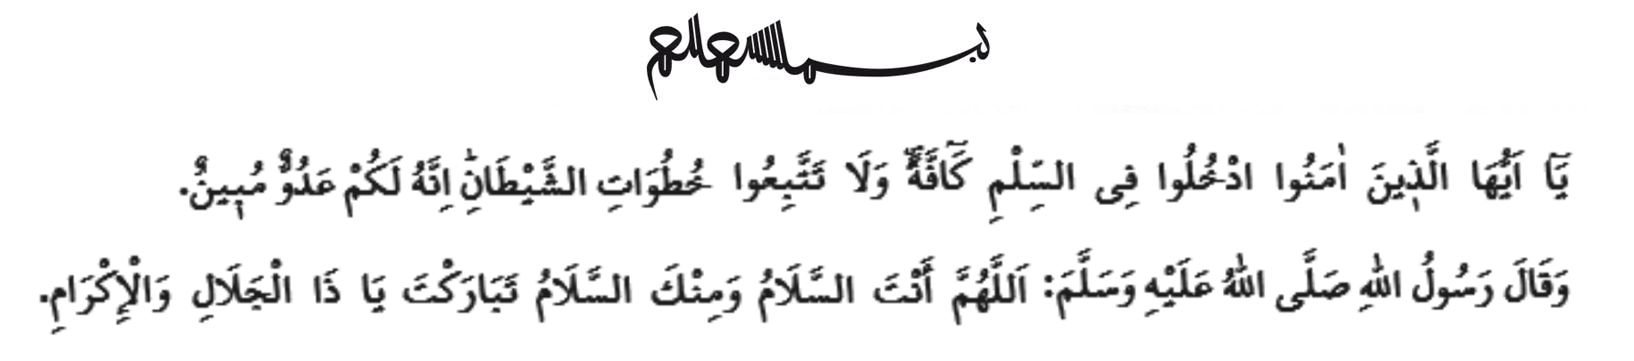 بسم الله الرحمن الرحيم
يَٓا اَيُّهَا الَّذ۪ينَ اٰمَنُوا ادْخُلُوا فِى السِّلْمِ كَٓافَّةًۖ وَلَا تَتَّبِعُوا خُطُوَاتِ الشَّيْطَانِۜ اِنَّهُ لَكُمْ عَدُوٌّ مُب۪ينٌ.
وَقَالَ رَسُولُ اللّٰهِ صَلَّى اللّٰهُ عَلَيْهِ وَسَلَّمَ: اَللَّهُمَّ أَنْتَ السَّلَامُ وَمِنْكَ السَّلَامُ تَبَارَكْتَ يَا ذَا الْجَلَالِ وَالْإِكْرَامِ.